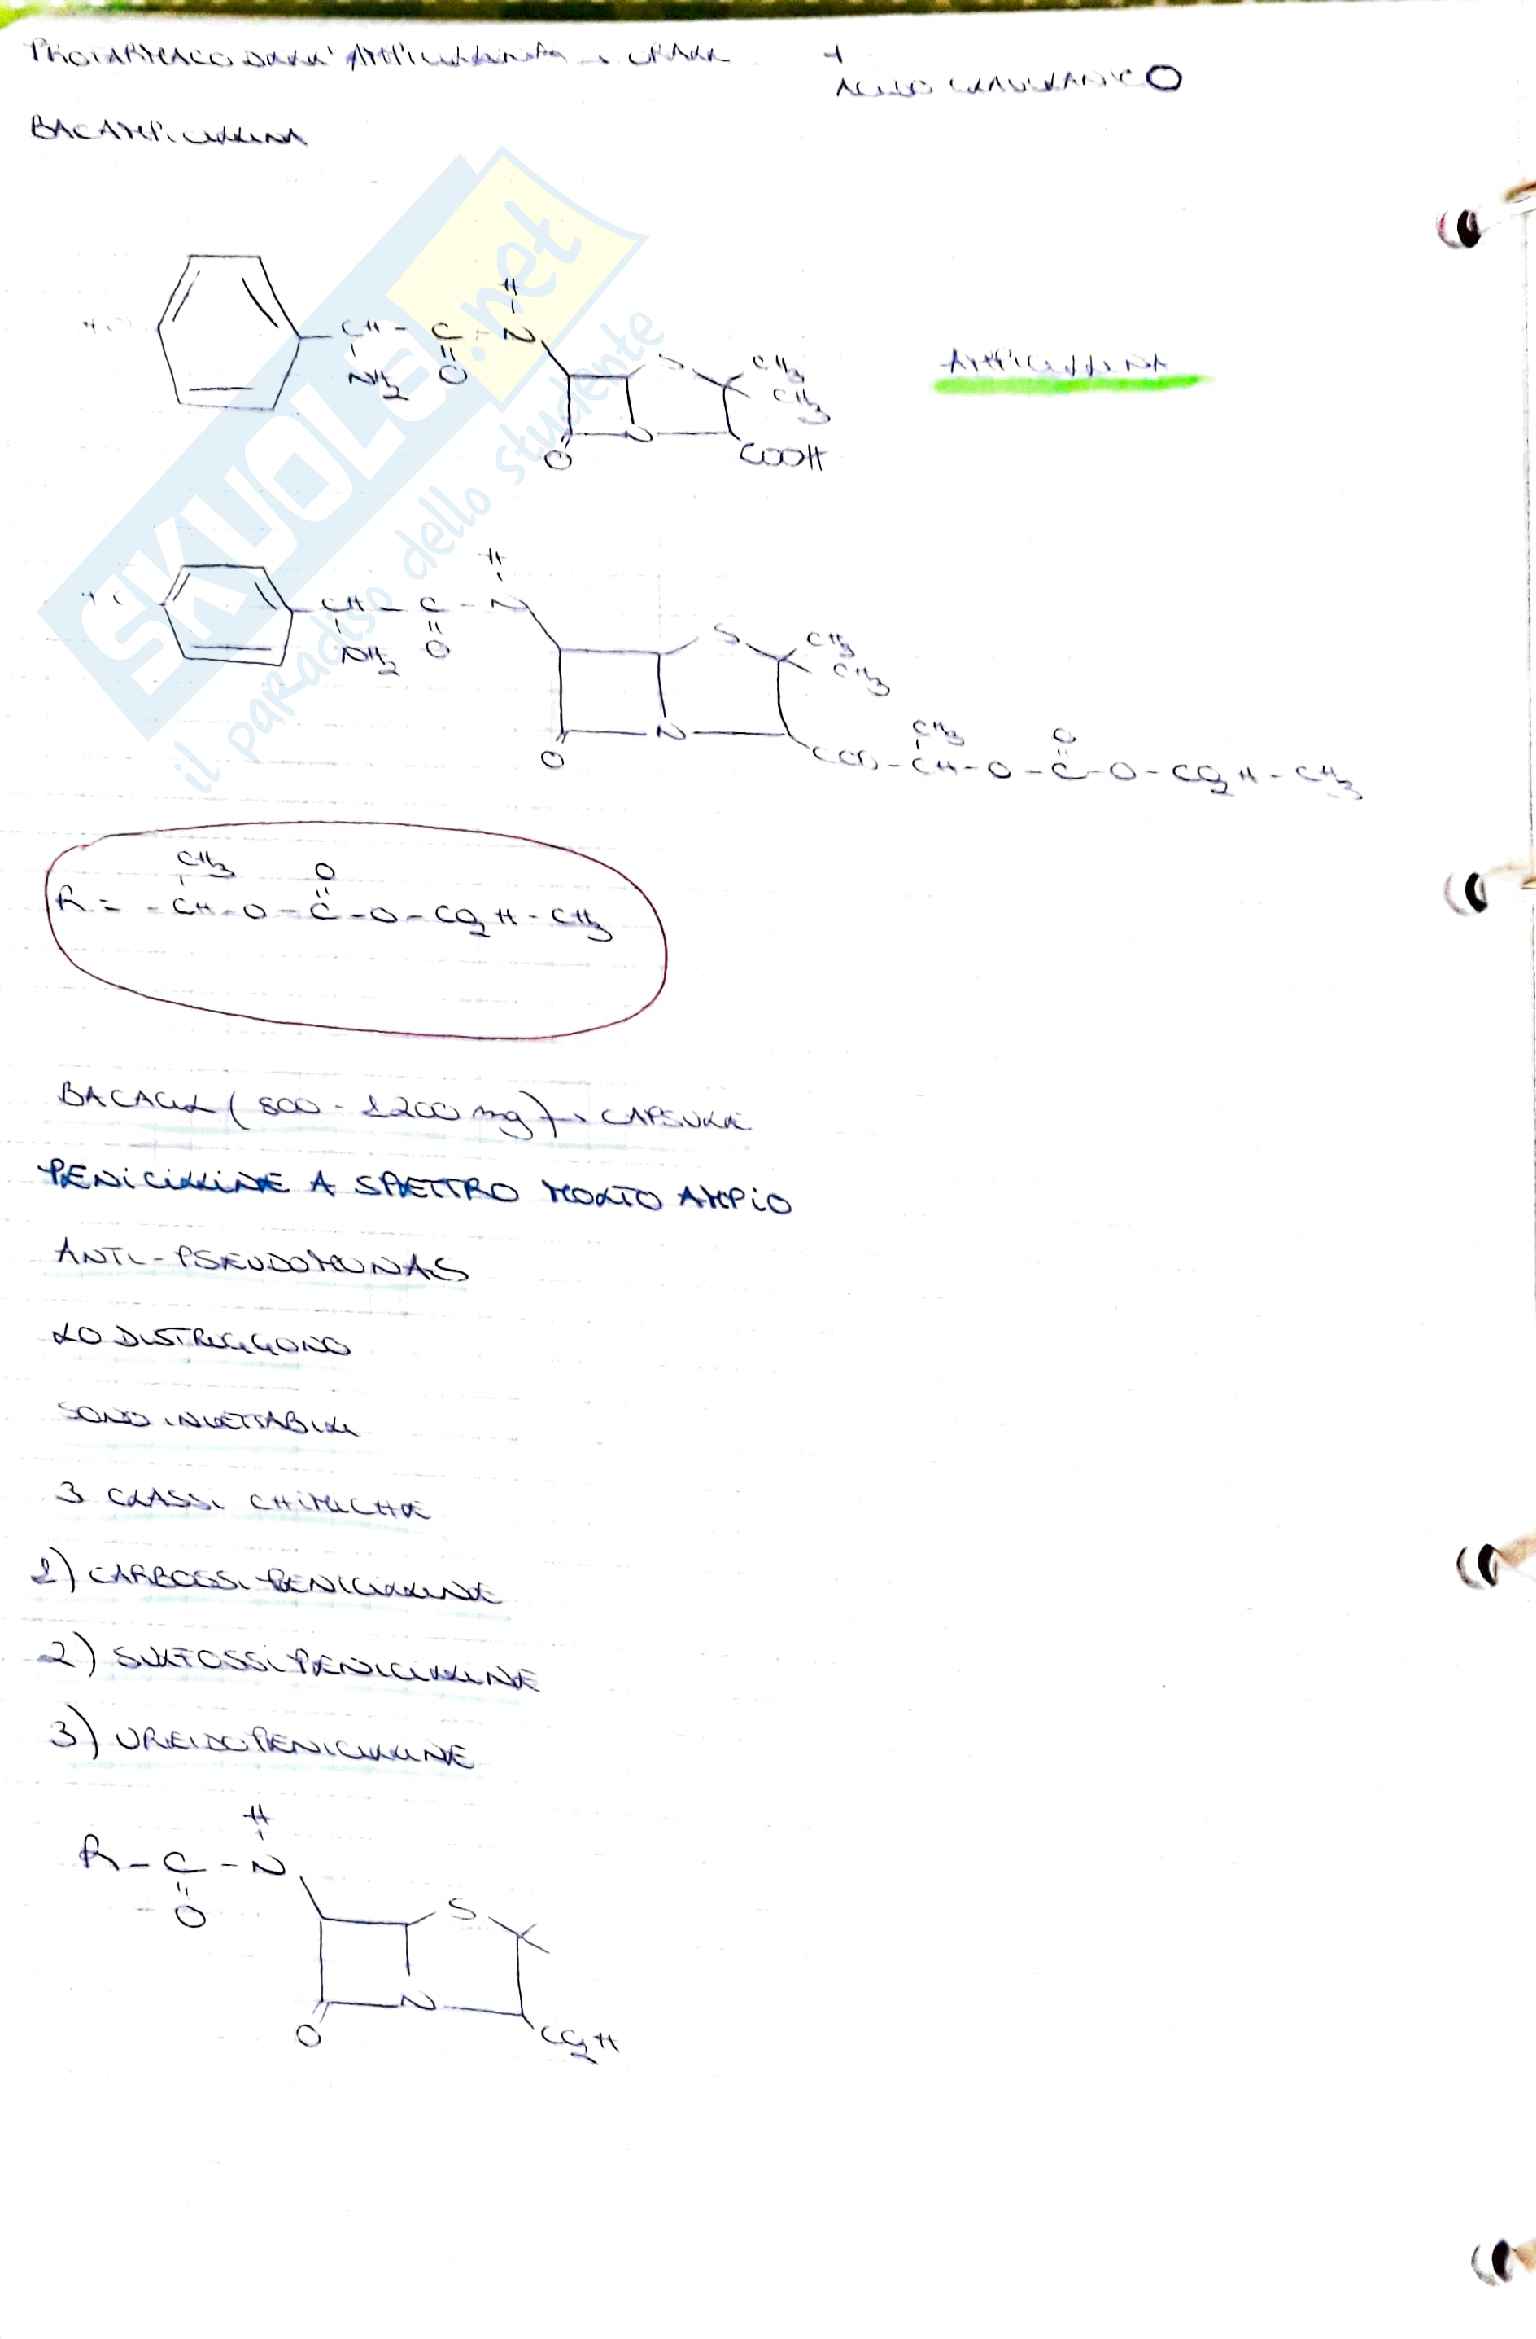 PROFARMACO DELL' AMPICILLINA → ORALE +
ACIDO CLAVULANICO
BACAMPICILLINA
SKUOLA.net
il paradiso dello studente
H
CH - C - N
NH2 O
S CH3
CH3
O N COOH
AMPICILLINA
H
CH - C - N
NH2 O
S CH3
CH3
O N
COO - CH - O - C - O - CO2H - CH3
CH3 O
CH3 O
R = - CH - O - C - O - CO2H - CH3
BACACIL (800 - 1200 mg) → CAPSULE
PENICILLINE A SPETTRO MOLTO AMPIO
ANTI-PSEUDOMONAS
LO DISTRUGGONO
SONO INIETTABILI
3 CLASSI CHIMICHE
1) CARBOSSI PENICILLINE
2) SULFOSSI PENICILLINE
3) UREIDO PENICILLINE
H
R - C - N
O S
O N CO2H